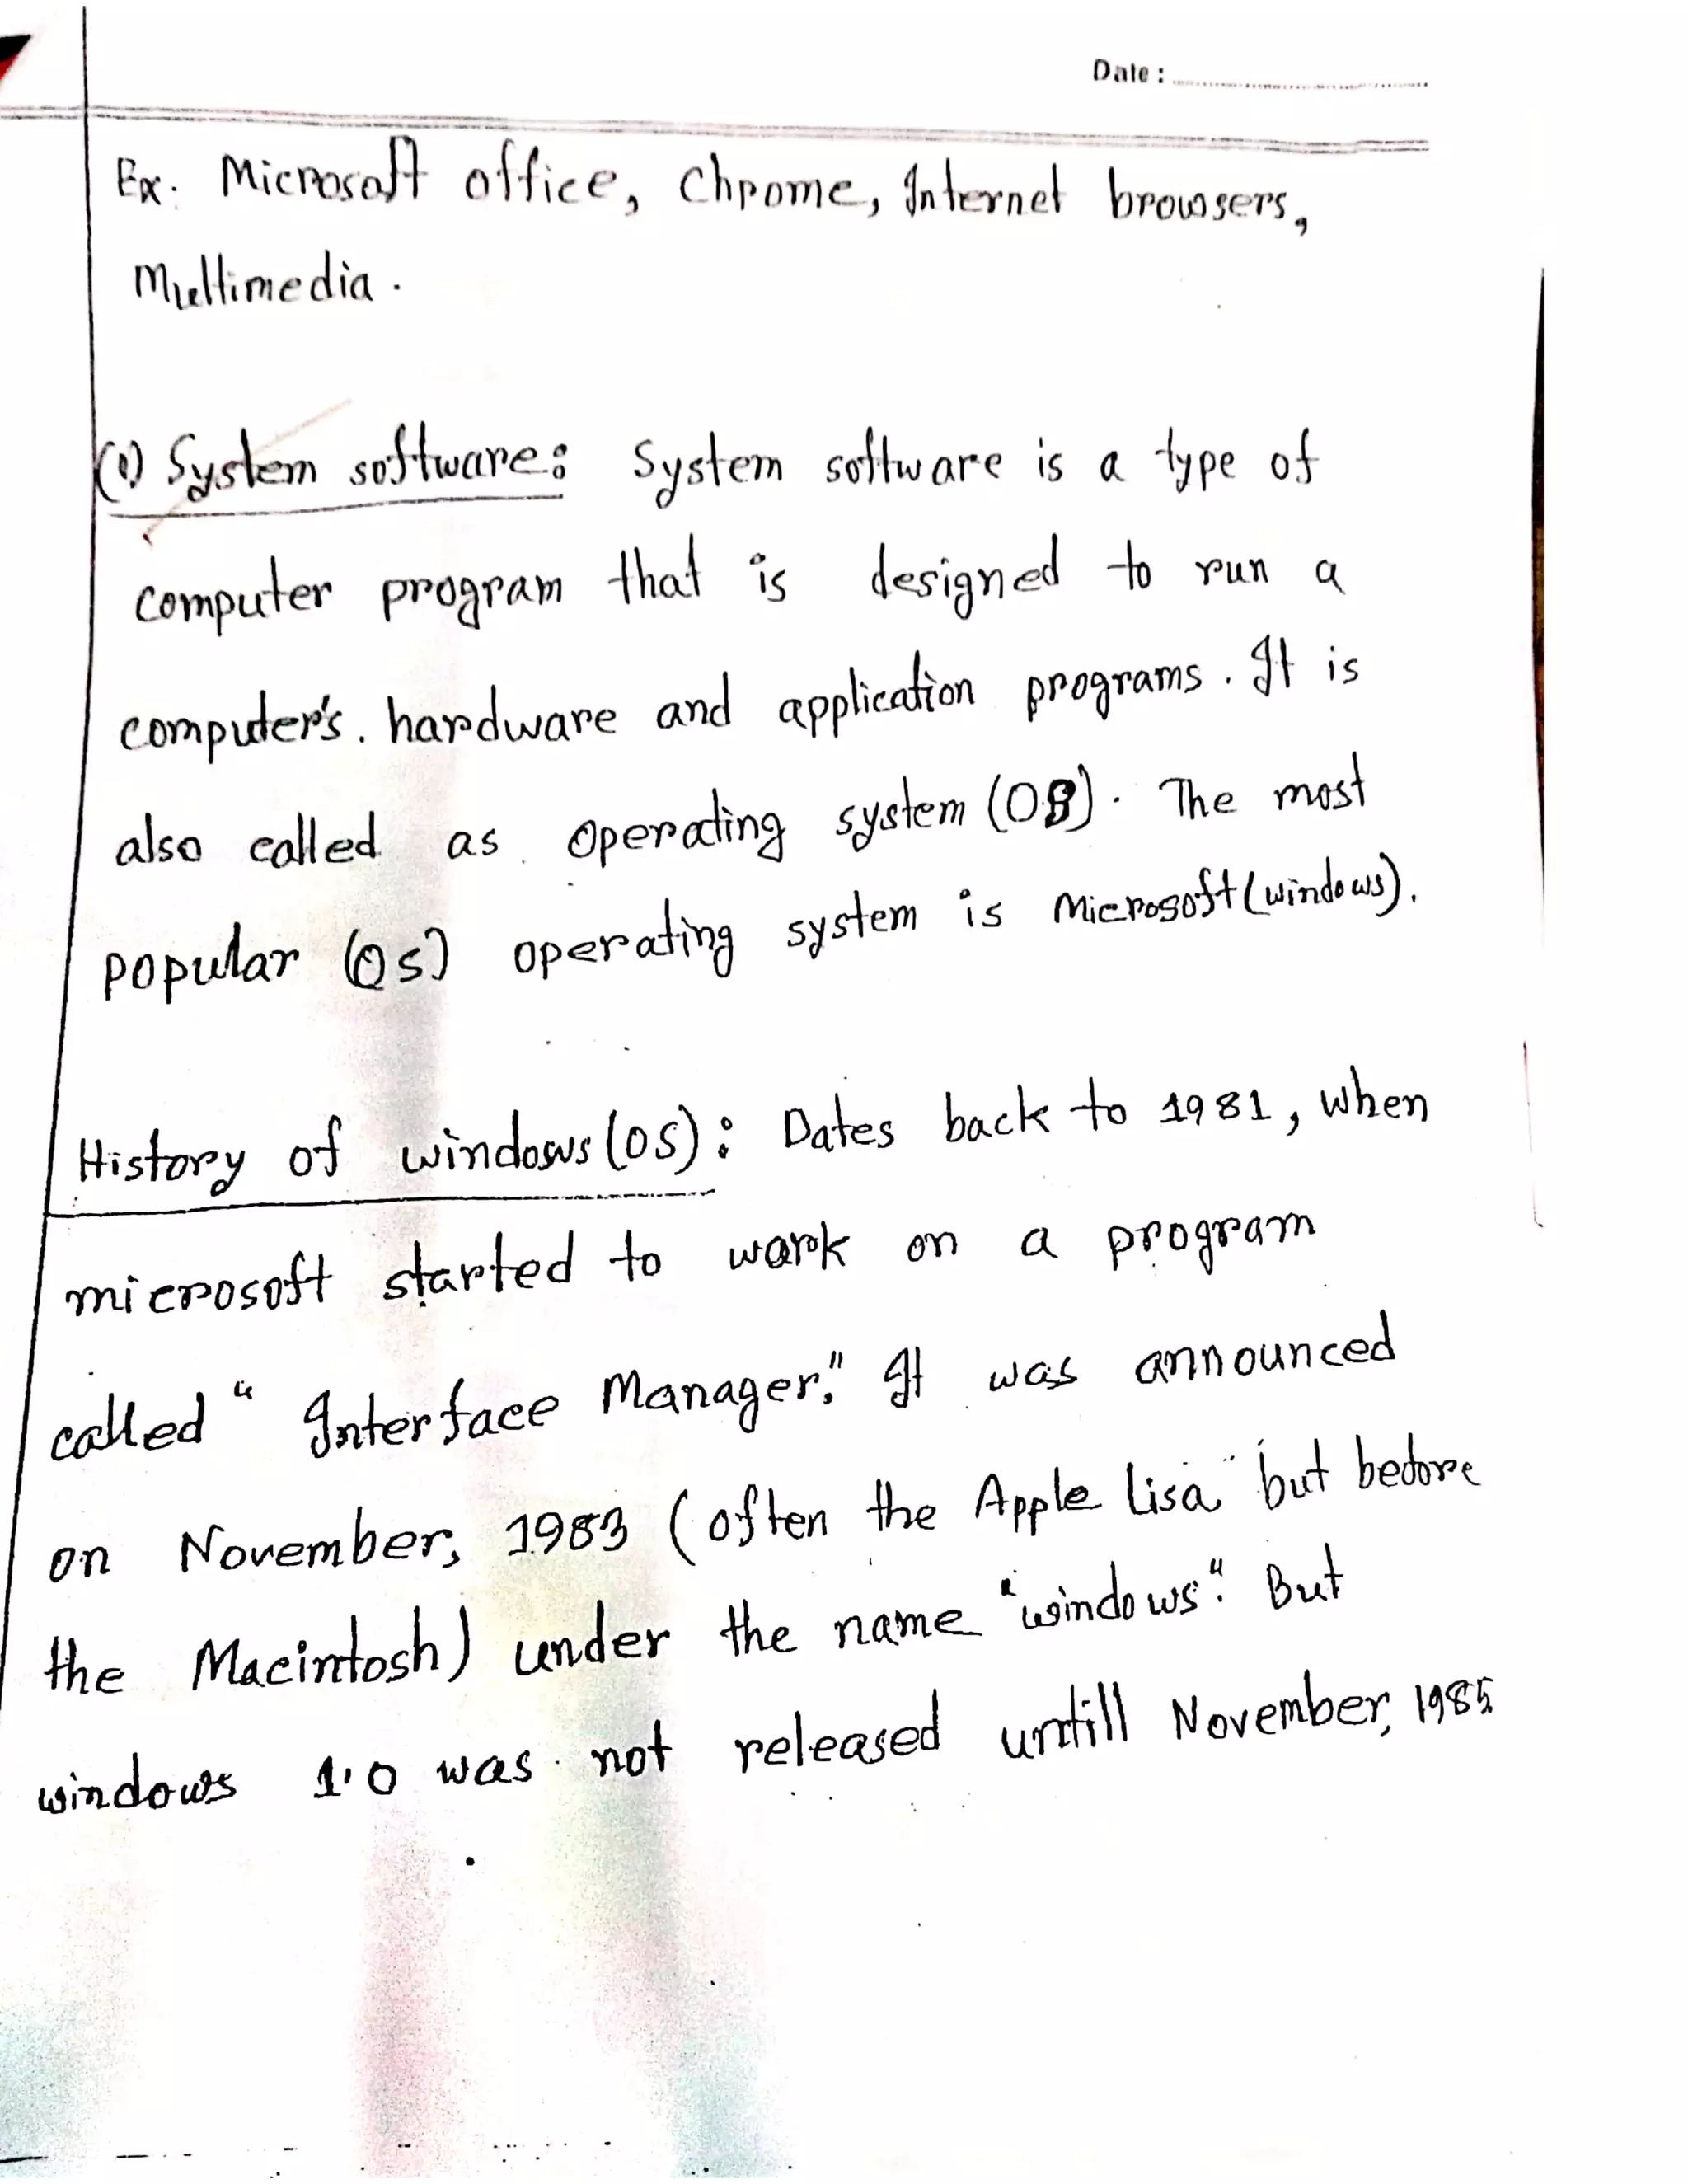 Date :
Ex: Microsoft office, Chrome, Internet browsers,
Multimedia.
(1) System software: System software is a type of
computer program that is designed to run a
computer's. hardware and application programs. It is
also called as operating system (OS). The most
popular (OS) operating system is Microsoft (windows).
History of windows (OS): Dates back to 1981, when
microsoft started to work on a program
called "Interface Manager." It was announced
on November, 1983 (often the Apple Lisa, but before
the Macintosh) under the name "windows". But
windows 1.0 was not released untill November, 1985